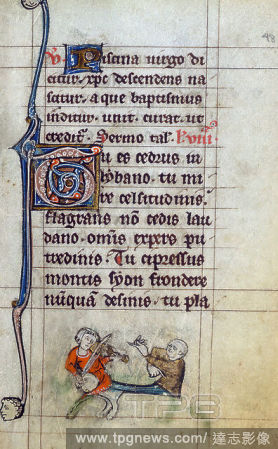 Piscina uirgo di
citur. xpc descendens na
scitur. aque baptismus
inditur. unit. curat. ut
Sermo
Tu es cedrus in
lybano. tu mi
re celsitudinis.
flagrans nō cedis lau
dano. om̄is expers pu
tredinis. Tu cipressus
montis syon frondere
nūquā desinis. tu pla
TPG
www.tpgnews.com/ 達志影像